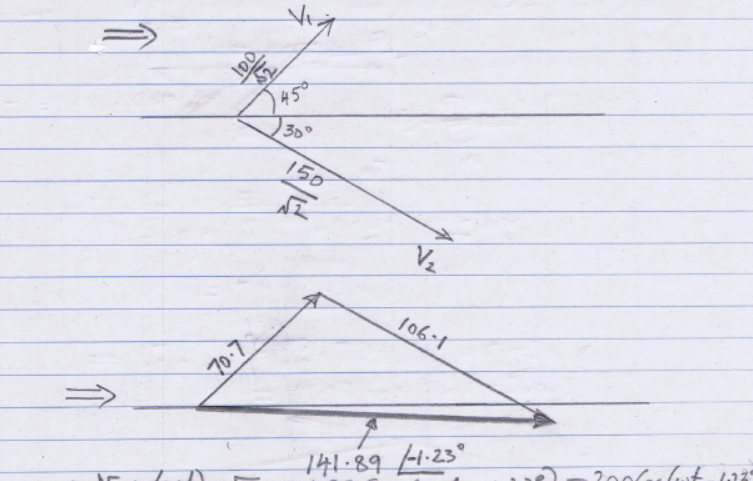 ⇒
V₁
100/√2
45°
30°
150/√2
V₂
70.7
106.1
⇒
141.89 ∠-1.23°